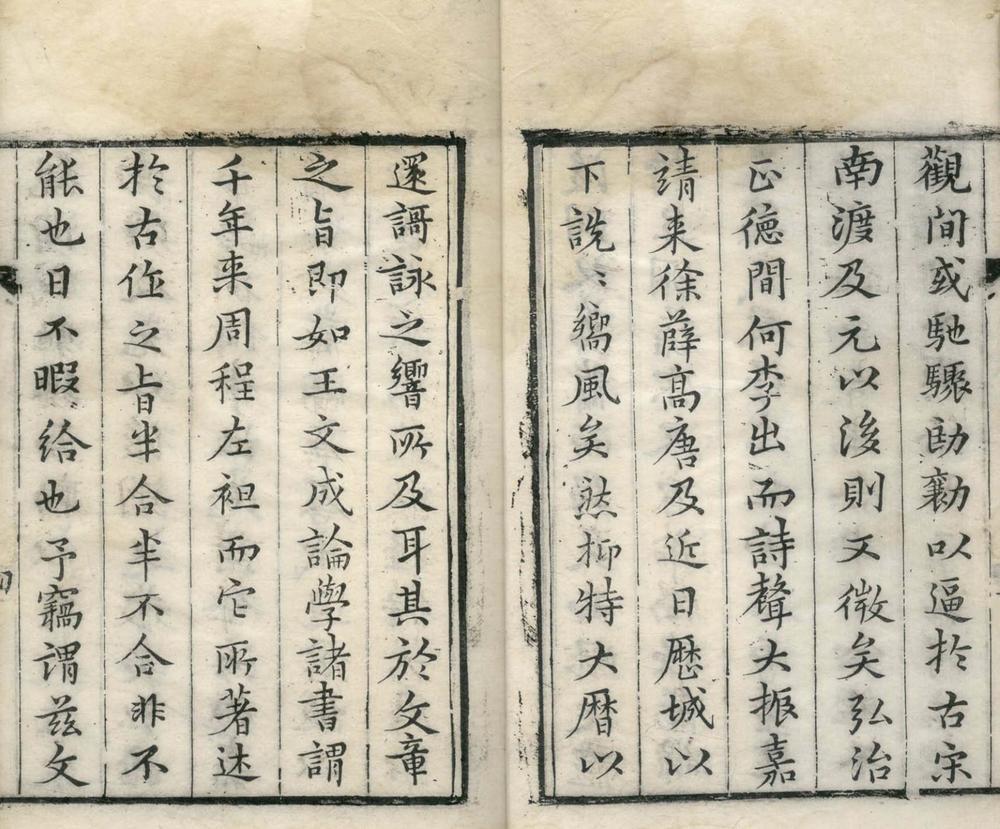 觀間或馳驟劻勷以逼扵古宋
南渡及元以後則又微矣弘治
正德間何李出而詩聲大振嘉
靖来徐薛高唐及近日歷城以
下説〻嚮風矣然抑特大曆以
還謌詠之響所及耳其於文章
之旨即如王文成論學諸書謂
千年来周程左袒而它所著述
扵古作之旨半合半不合非不
能也日不暇给也予竊謂兹文